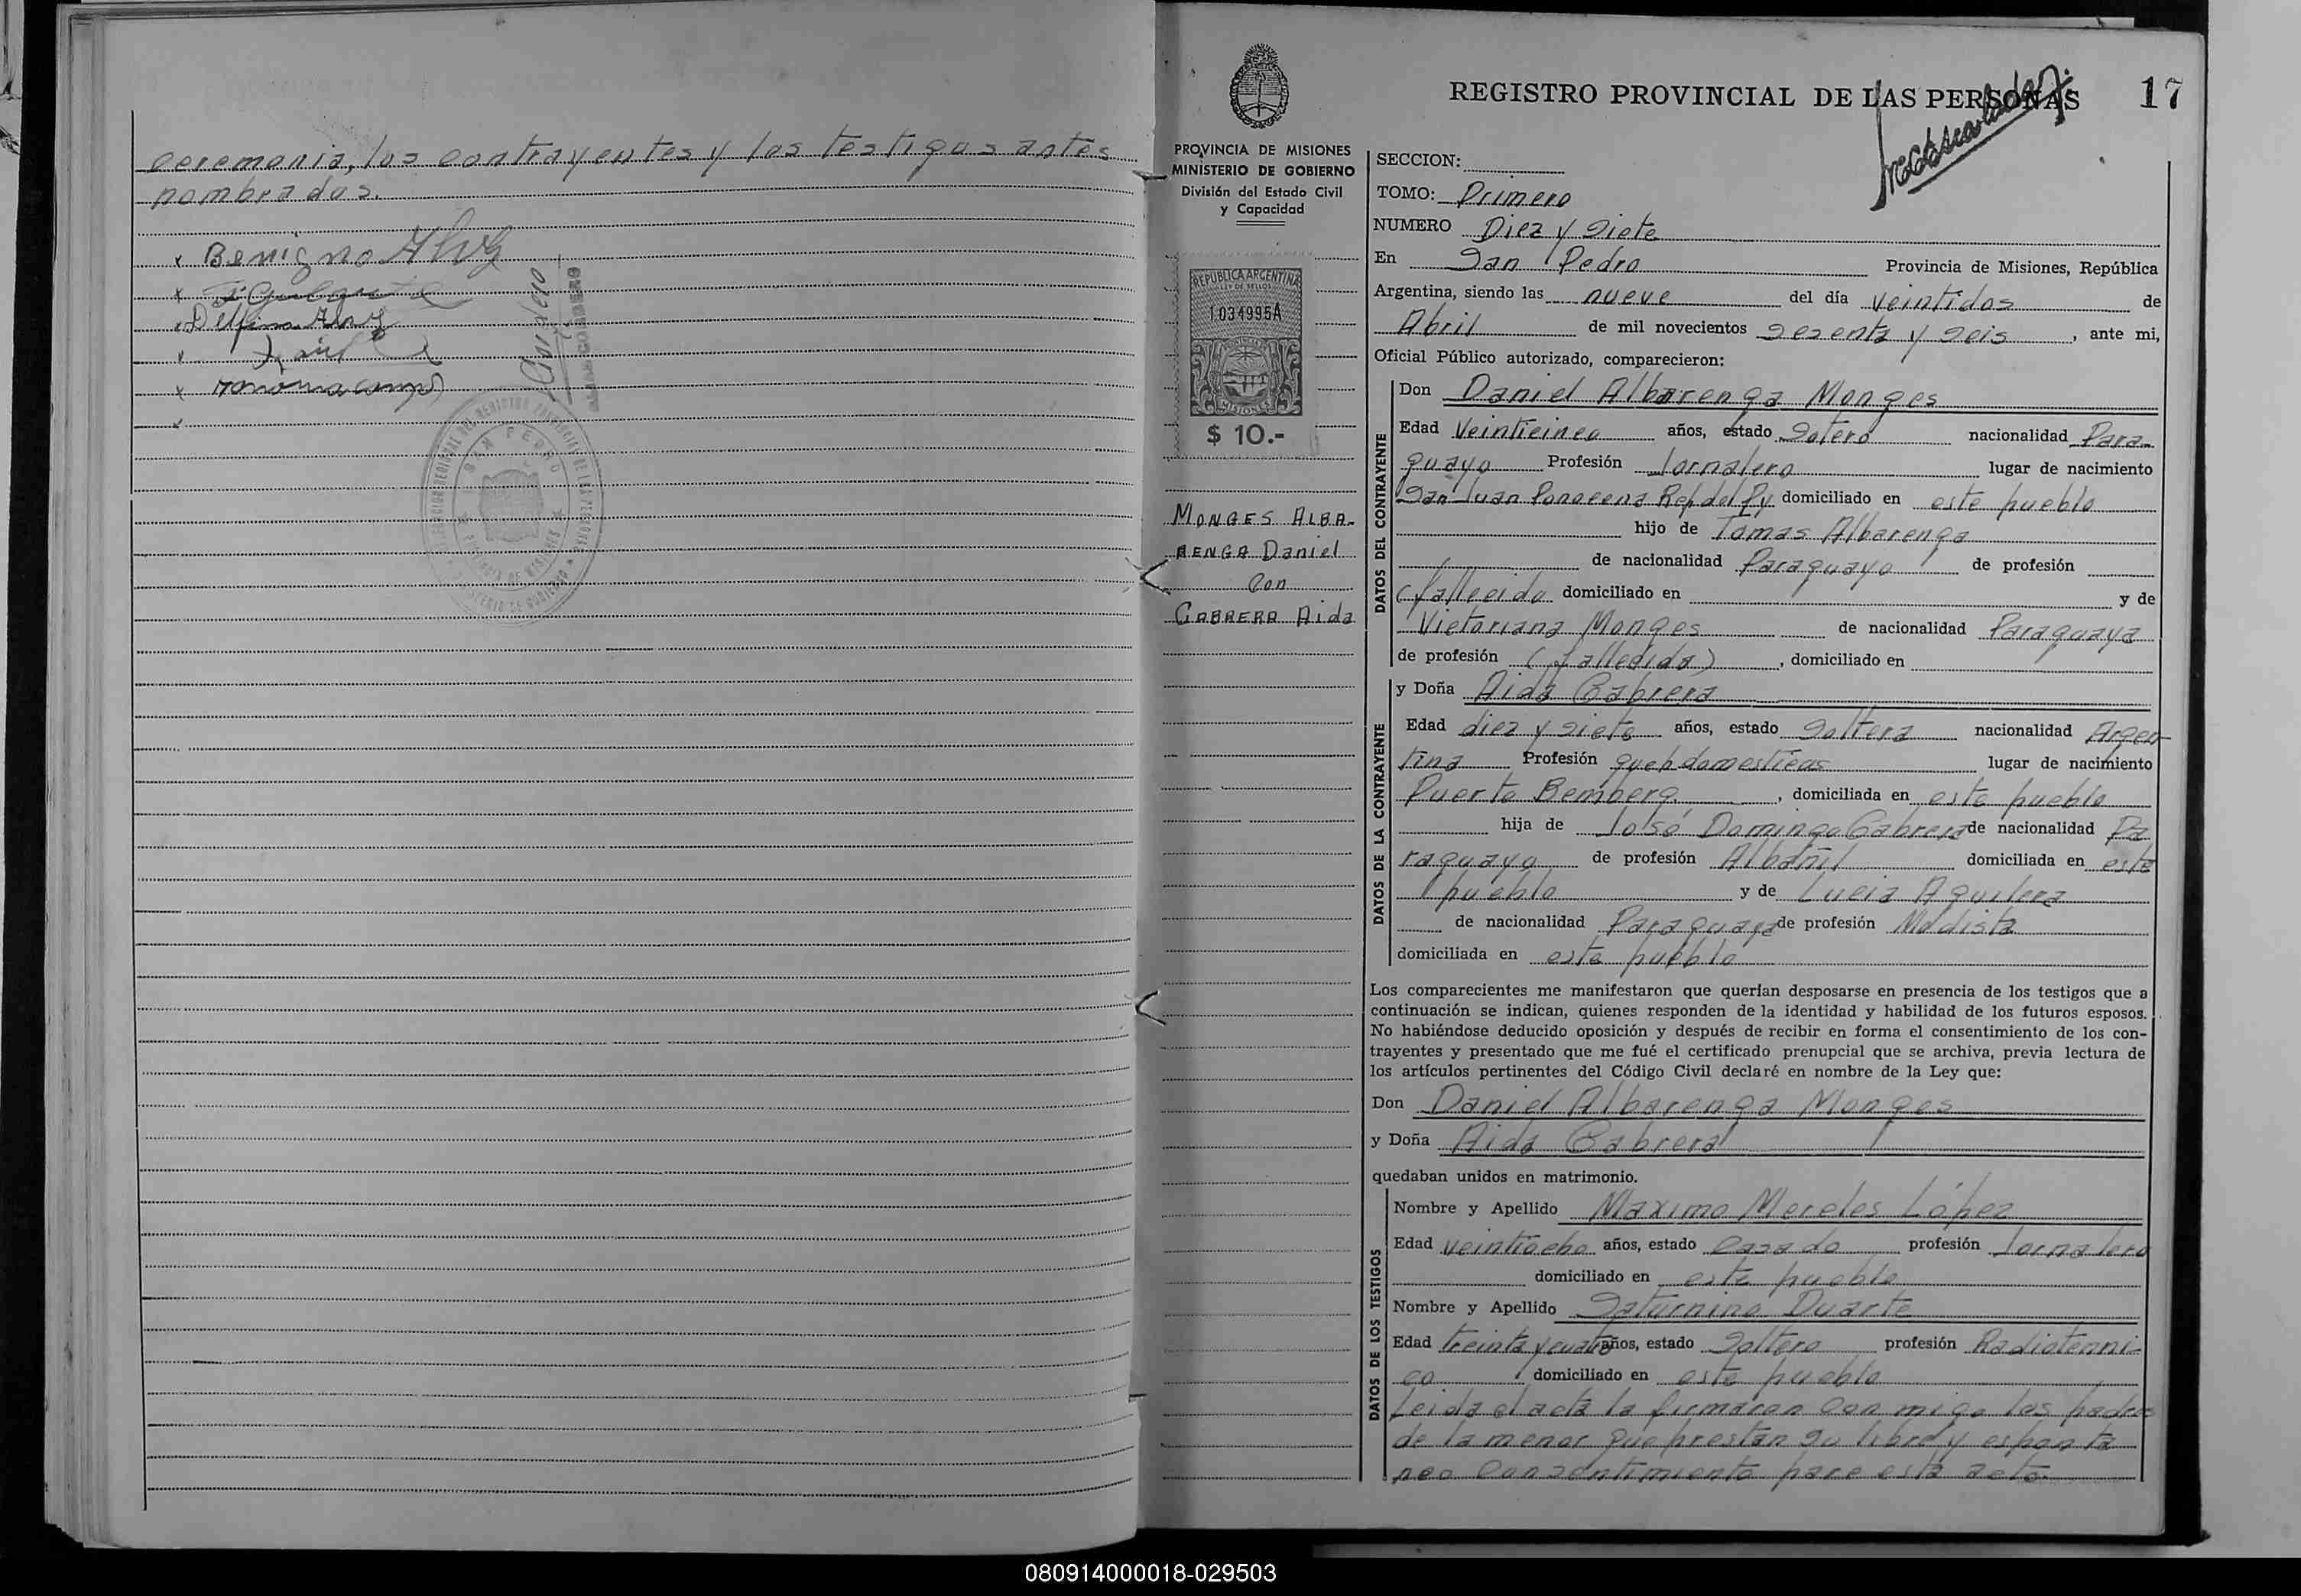 ceremonia, los contrayentes y los testigos antes
nombrados.
x Benigno
x
x Delfina
x
x
x
REGISTRO PROVINCIAL DE LAS PERSONAS
17
PROVINCIA DE MISIONES
MINISTERIO DE GOBIERNO
División del Estado Civil
y Capacidad
REPUBLICA ARGENTINA
LEY DE SELLOS
1.034995A
MISIONES
$ 10.-
MONGES ALBA-
RENGA Daniel
Con
CABRERA Aida
SECCION:
TOMO: Primero
NUMERO Diez y Siete
En San Pedro Provincia de Misiones, República
Argentina, siendo las nueve del día veintidos de
Abril de mil novecientos sesenta y seis, ante mi,
Oficial Público autorizado, comparecieron:
DATOS DEL CONTRAYENTE
Don Daniel Albarenga Monges
Edad Veinticinco años, estado Sotero nacionalidad Para-
guayo Profesión Jornalero lugar de nacimiento
San Juan Rep del Py domiciliado en este pueblo
hijo de Tomas Albarenga
de nacionalidad Paraguayo de profesión
(fallecido domiciliado en y de
Victoriana Monges de nacionalidad Paraguaya
de profesión (fallecida) , domiciliado en
DATOS DE LA CONTRAYENTE
y Doña Aida Cabrera
Edad diez y siete años, estado Soltera nacionalidad Argen-
tina Profesión queh domesticos lugar de nacimiento
Puerto Bemberg , domiciliada en este pueblo
hija de José Domingo Cabrera de nacionalidad Pa
raguayo de profesión Albañil domiciliada en este
pueblo y de Lucia Aguilera
de nacionalidad Paraguaya de profesión Modista
domiciliada en este pueblo
Los comparecientes me manifestaron que querían desposarse en presencia de los testigos que a
continuación se indican, quienes responden de la identidad y habilidad de los futuros esposos.
No habiéndose deducido oposición y después de recibir en forma el consentimiento de los con-
trayentes y presentado que me fué el certificado prenupcial que se archiva, previa lectura de
los artículos pertinentes del Código Civil declaré en nombre de la Ley que:
Don Daniel Albarenga Monges
y Doña Aida Cabrera
quedaban unidos en matrimonio.
DATOS DE LOS TESTIGOS
Nombre y Apellido Maximo Mereles López
Edad veintiocho años, estado Casado profesión Jornalero
domiciliado en este pueblo
Nombre y Apellido Saturnino Duarte
Edad treinta y cuatro años, estado Soltero profesión Radiotecni-
co domiciliado en este pueblo
Leida el acta la firmaron con migo los padres
de la menor que prestan su libre y esponta
neo consentimiento para este acto.
080914000018-029503